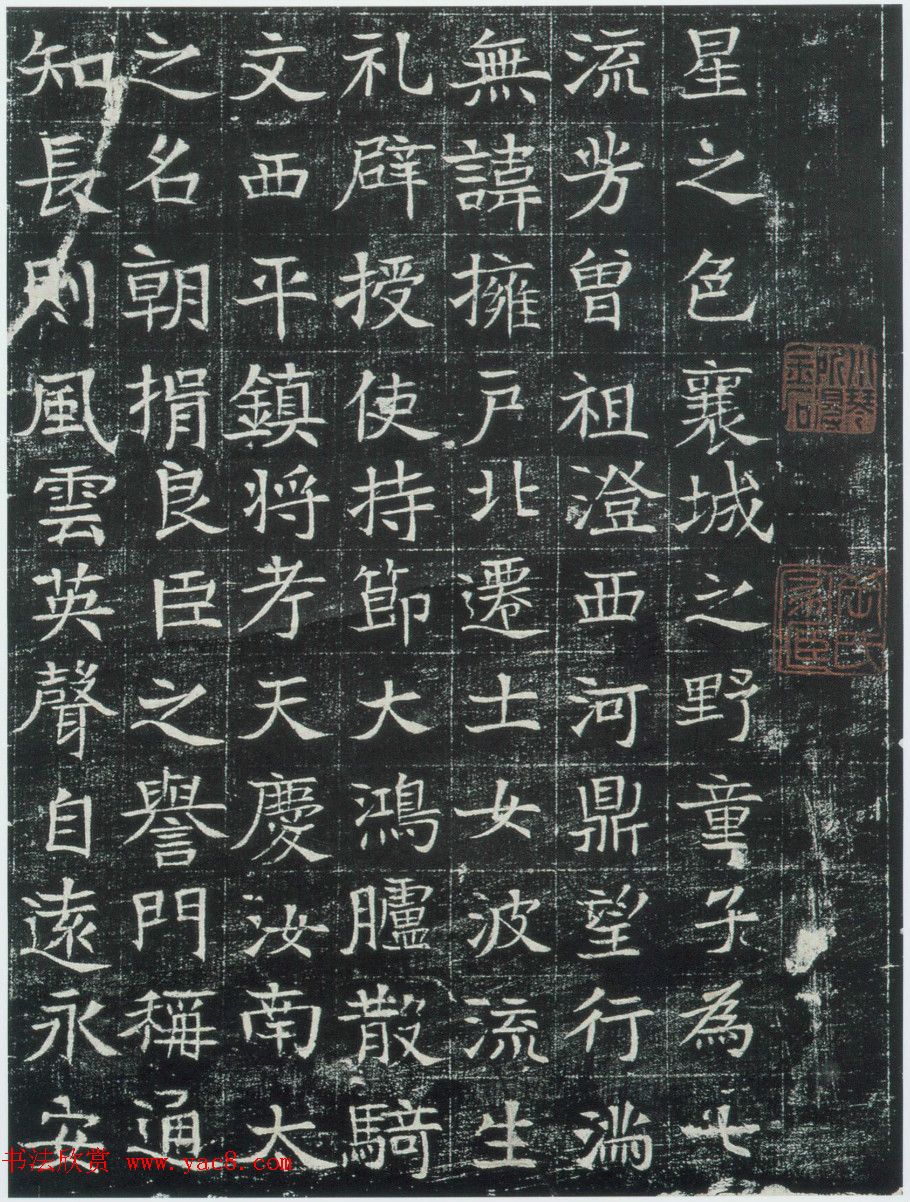 星之色襄城之野童子為七
流芳曽祖澄西河鼎望行満
無諱擁戸北遷士女波流生
礼辟授使持節大鴻臚散騎
文西平鎮将考天慶汝南太
之名朝捐良臣之譽門稱通
知長則風雲英聲自遠永安
书法欣赏 www.yac8.com